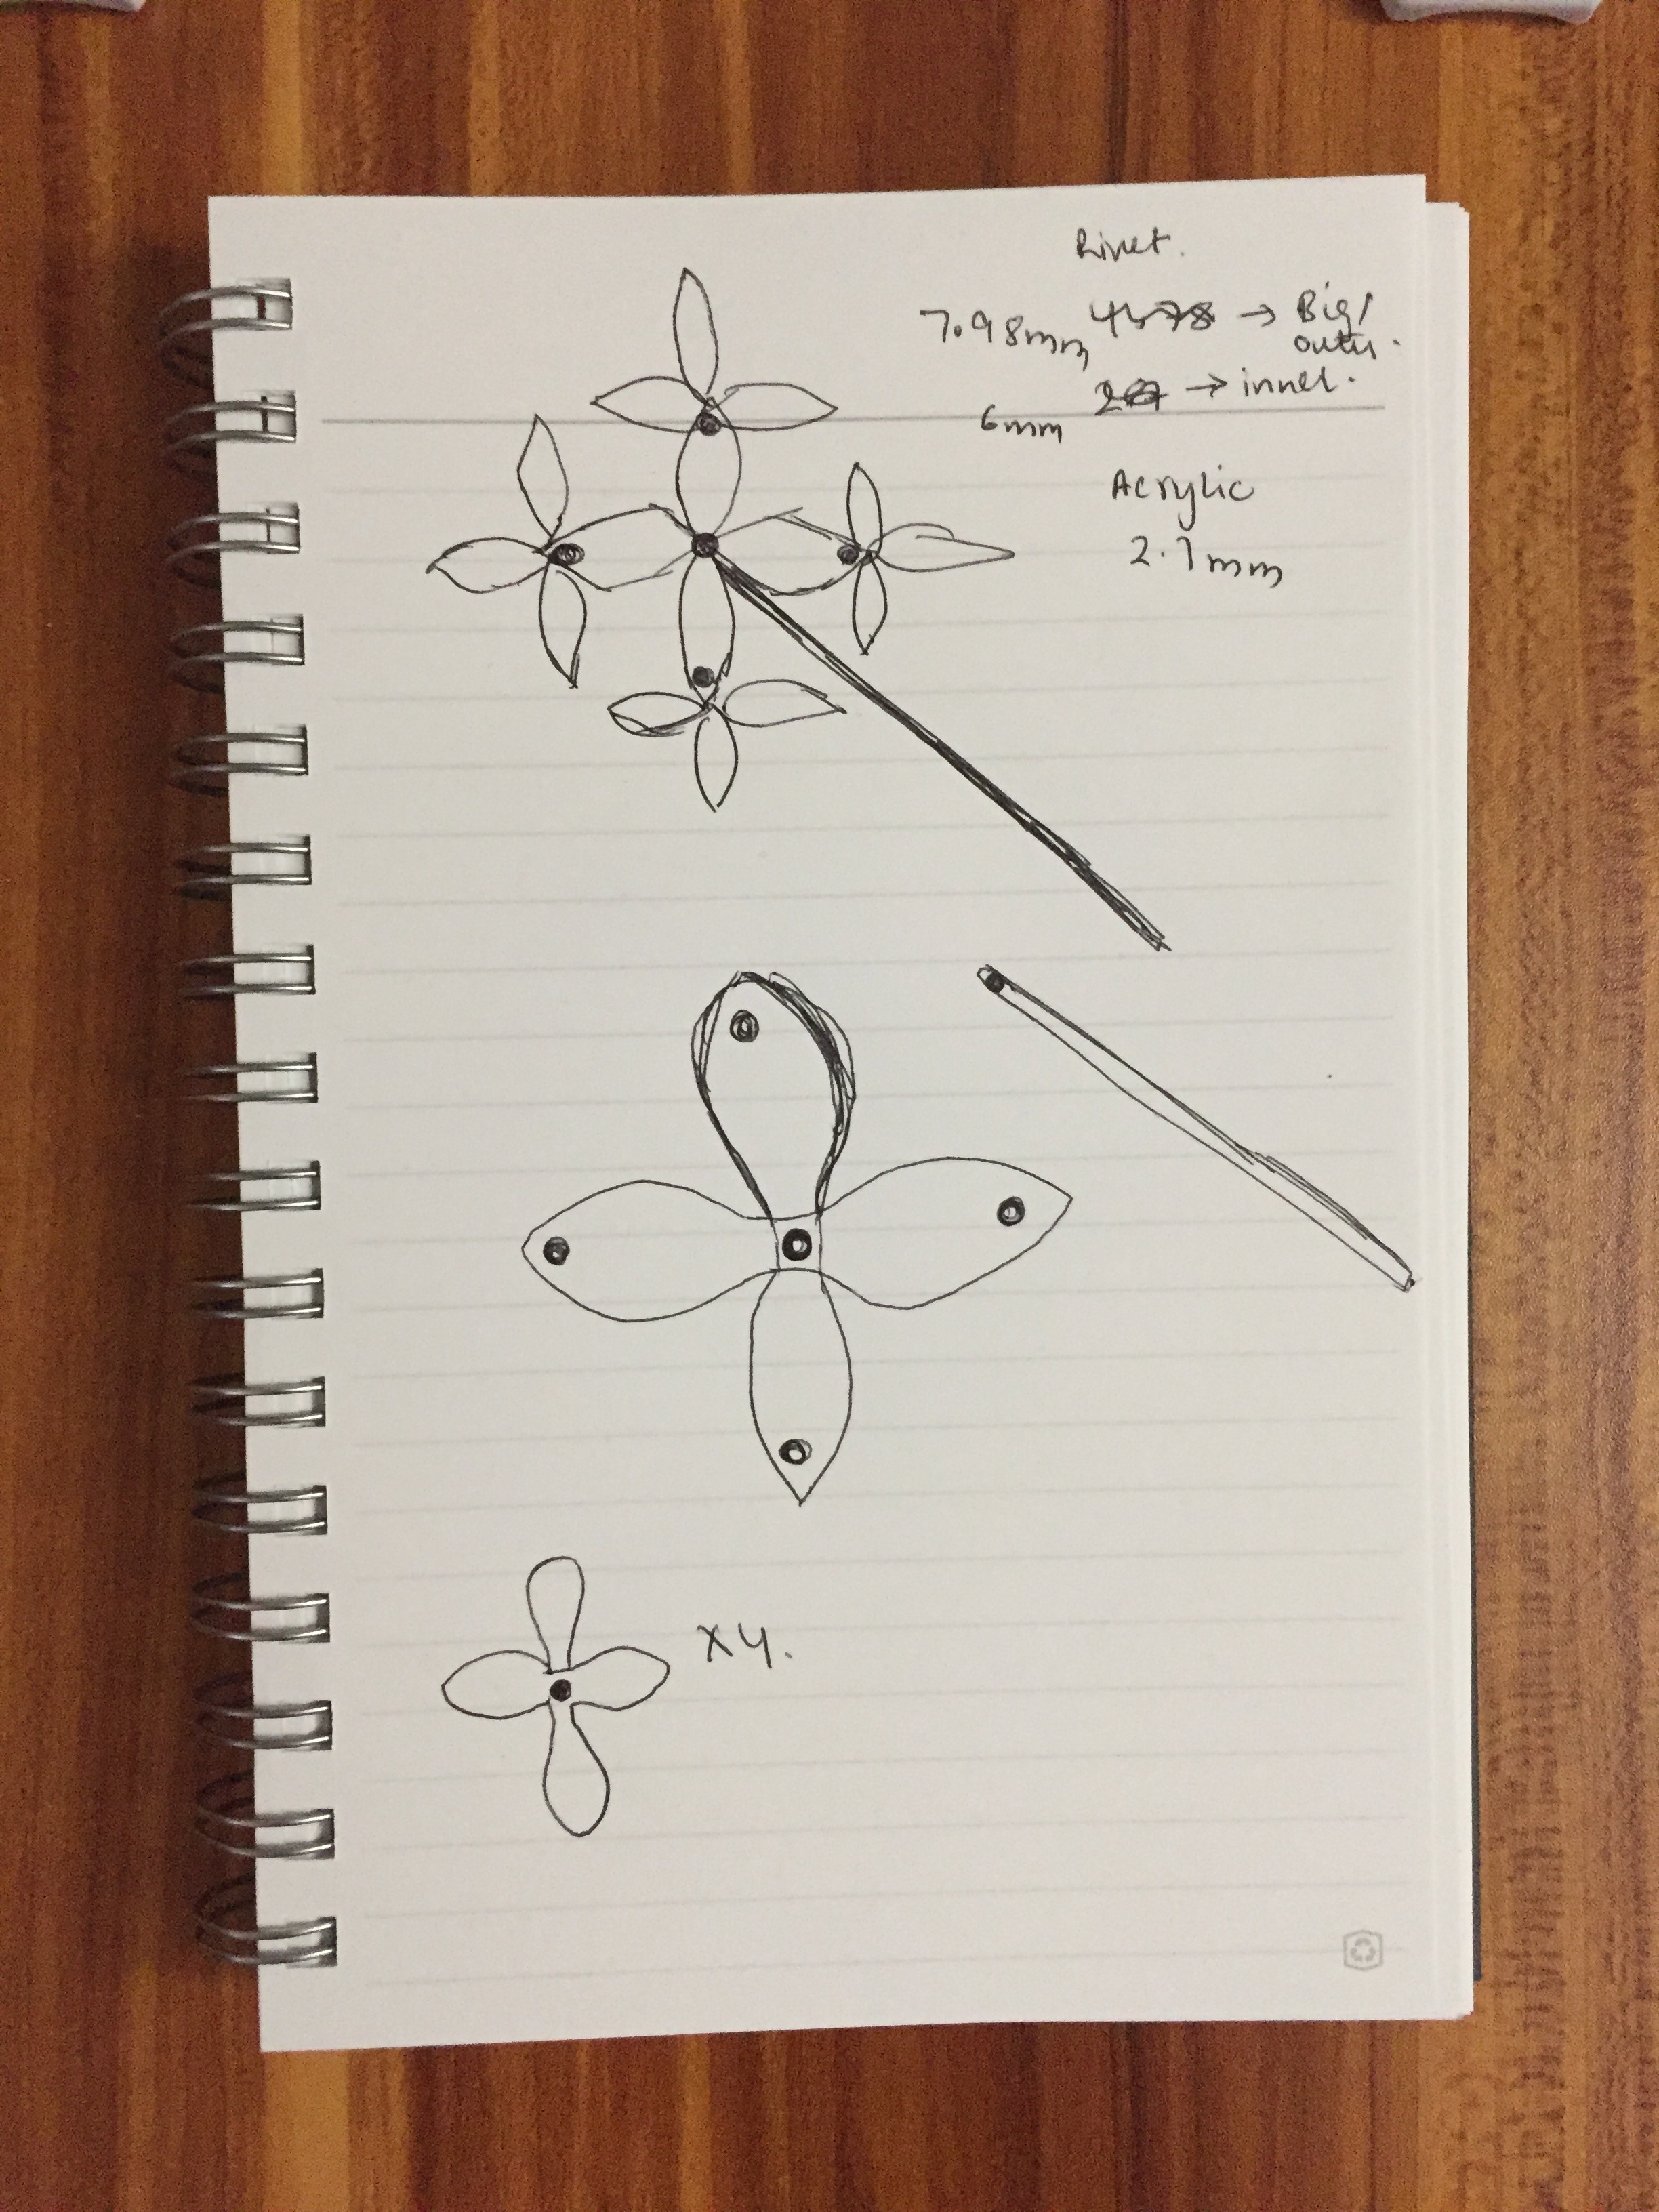 Rivet.
7.98mm → Big/
outer.
6mm → inner.
Acrylic
2.7mm
x4.